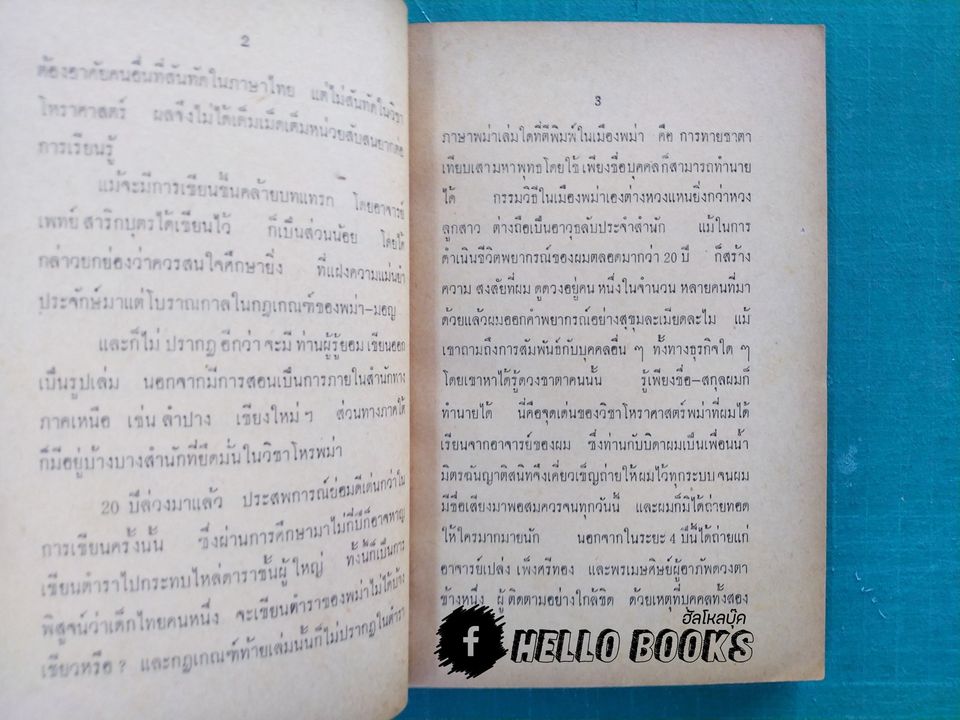 2
ต้องอาศัยคนอื่นที่สันทัดในภาษาไทย แต่ไม่สันทัดในวิชา
โหราศาสตร์ ผลจึงไม่ได้เต็มเม็ดเต็มหน่วยสับสนยากต่อ
การเรียนรู้
แม้จะมีการเขียนขึ้นคล้ายบทแทรก โดยอาจารย์
เพทย์ สาริกบุตรได้เขียนไว้ ก็เป็นส่วนน้อย โดยได้
กล่าวยกย่องว่าควรสนใจศึกษายิ่ง ที่แฝงความแม่นยำ
ประจักษ์มาแต่โบราณกาลในกฎเกณฑ์ของพม่า-มอญ
และก็ไม่ ปรากฏ อีกว่า จะมี ท่านผู้รู้ยอม เขียนออก
เป็นรูปเล่ม นอกจากมีการสอนเป็นการภายในสำนักทาง
ภาคเหนือ เช่น ลำปาง เชียงใหม่ ฯ ส่วนทางภาคใต้
ก็มีอยู่บ้างบางสำนักที่ยึดมั่นในวิชาโหรพม่า
20 ปีล่วงมาแล้ว ประสพการณ์ย่อมดีเด่นกว่าใน
การเขียนครั้งนั้น ซึ่งผ่านการศึกษามาไม่กี่ปีก็อาจหาญ
เขียนตำราไปกระทบไหล่ดาราชั้นผู้ใหญ่ ทั้งนี้ก็เป็นการ
พิสูจน์ว่าเด็กไทยคนหนึ่ง จะเขียนตำราของพม่าไม่ได้บ้าง
เชียวหรือ ? และกฎเกณฑ์ท้ายเล่มนั้นก็ไม่ปรากฏในตำรา
3
ภาษาพม่าเล่มใดที่ตีพิมพ์ในเมืองพม่า คือ การทายชาตา
เทียบเสามหาพุทธโดยใช้ เพียงชื่อบุคคลก็สามารถทำนาย
ได้ กรรมวิธีในเมืองพม่าเองต่างหวงแหนยิ่งกว่าหวง
ลูกสาว ต่างถือเป็นอาวุธลับประจำสำนัก แม้ในการ
ดำเนินชีวิตพยากรณ์ของผมตลอดมากว่า 20 ปี ก็สร้าง
ความ สงสัยที่ผม ดูดวงอยู่คน หนึ่งในจำนวน หลายคนที่มา
ด้วยแล้วผมออกคำพยากรณ์อย่างสุขุมละเมียดละไม แม้
เขาถามถึงการสัมพันธ์กับบุคคลอื่น ๆ ทั้งทางธุรกิจใด ๆ
โดยเขาหาได้รู้ดวงชาตาคนนั้น รู้เพียงชื่อ-สกุลผมก็
ทำนายได้ นี่คือจุดเด่นของวิชาโหราศาสตร์พม่าที่ผมได้
เรียนจากอาจารย์ของผม ซึ่งท่านกับบิดาผมเป็นเพื่อนน้ำ
มิตรฉันญาติสนิทจึงเคี่ยวเข็ญถ่ายให้ผมไว้ทุกระบบ จนผม
มีชื่อเสียงมาพอสมควรจนทุกวันนี้ และผมก็มิได้ถ่ายทอด
ให้ใครมากมายนัก นอกจากในระยะ 4 ปีนี้ได้ถ่ายแก่
อาจารย์เปล่ง เพ็งศรีทอง และพรเมษศิษย์ผู้อาภัพดวงตา
ข้างหนึ่ง ผู้ ติดตามอย่างใกล้ชิด ด้วยเหตุที่บุคคลทั้งสอง
ฮัลโหลบุ๊ค
f HELLO BOOKS